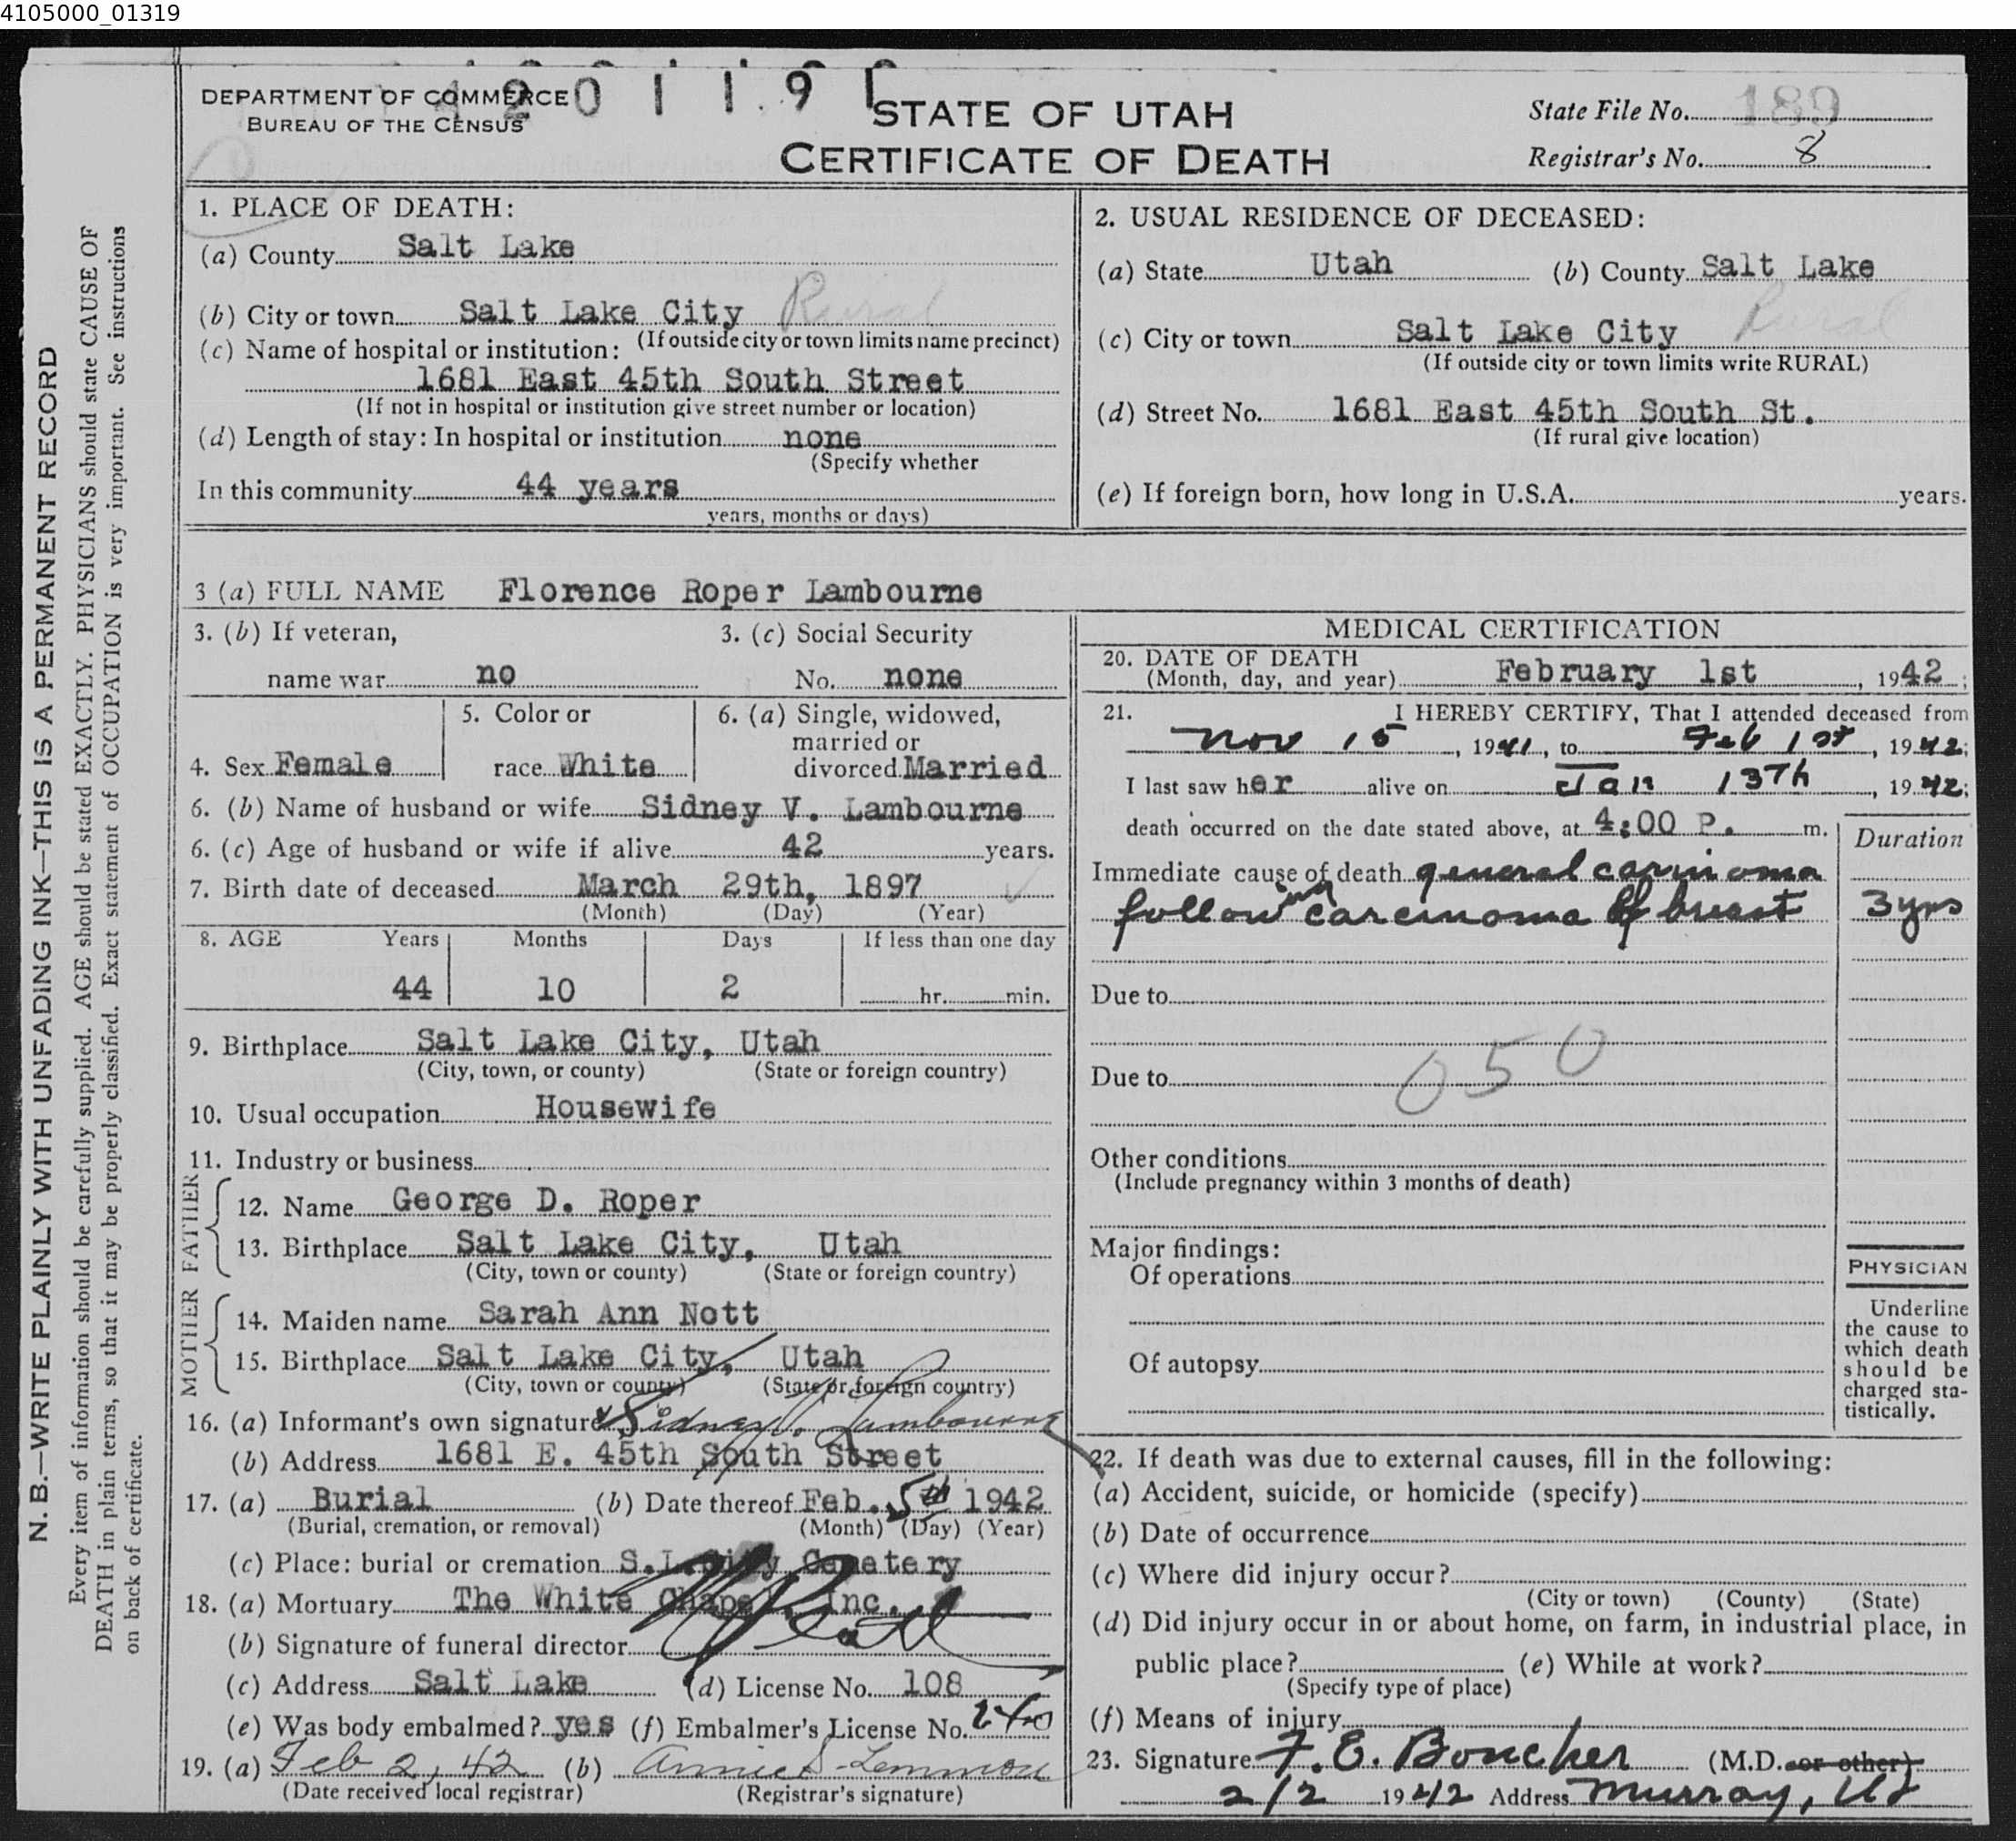 4105000_01319
DEPARTMENT OF COMMERCE
BUREAU OF THE CENSUS
4201191
STATE OF UTAH
CERTIFICATE OF DEATH
State File No. 189
Registrar's No. 8
N. B.—WRITE PLAINLY WITH UNFADING INK—THIS IS A PERMANENT RECORD
Every item of information should be carefully supplied. AGE should be stated EXACTLY. PHYSICIANS should state CAUSE OF
DEATH in plain terms, so that it may be properly classified. Exact statement of OCCUPATION is very important. See instructions
on back of certificate.
1. PLACE OF DEATH:
(a) County Salt Lake
(b) City or town Salt Lake City Rural
(If outside city or town limits name precinct)
(c) Name of hospital or institution:
1681 East 45th South Street
(If not in hospital or institution give street number or location)
(d) Length of stay: In hospital or institution none
(Specify whether
In this community 44 years
years, months or days)
2. USUAL RESIDENCE OF DECEASED:
(a) State Utah (b) County Salt Lake
(c) City or town Salt Lake City Rural
(If outside city or town limits write RURAL)
(d) Street No. 1681 East 45th South St.
(If rural give location)
(e) If foreign born, how long in U.S.A. years.
3 (a) FULL NAME Florence Roper Lambourne
3. (b) If veteran, 3. (c) Social Security
name war no No. none
4. Sex Female
5. Color or
race White
6. (a) Single, widowed,
married or
divorced Married
6. (b) Name of husband or wife Sidney V. Lambourne
6. (c) Age of husband or wife if alive 42 years.
7. Birth date of deceased March 29th, 1897
(Month) (Day) (Year)
8. AGE Years Months Days If less than one day
44 10 2 hr. min.
9. Birthplace Salt Lake City, Utah
(City, town, or county) (State or foreign country)
10. Usual occupation Housewife
11. Industry or business
FATHER
12. Name George D. Roper
13. Birthplace Salt Lake City, Utah
(City, town or county) (State or foreign country)
MOTHER
14. Maiden name Sarah Ann Nott
15. Birthplace Salt Lake City, Utah
(City, town or county) (State or foreign country)
16. (a) Informant's own signature Sidney V. Lambourne
(b) Address 1681 E. 45th South Street
17. (a) Burial (b) Date thereof Feb. 5th 1942
(Burial, cremation, or removal) (Month) (Day) (Year)
(c) Place: burial or cremation S.L. City Cemetery
18. (a) Mortuary The White Chapel, Inc.
(b) Signature of funeral director
(c) Address Salt Lake (d) License No. 108
(e) Was body embalmed? yes (f) Embalmer's License No.
19. (a) Feb 2, 42 (b) Annie S. Lemmon
(Date received local registrar) (Registrar's signature)
MEDICAL CERTIFICATION
20. DATE OF DEATH
(Month, day, and year) February 1st, 1942;
21. I HEREBY CERTIFY, That I attended deceased from
Nov 15, 1941, to Feb 1st, 1942;
I last saw her alive on Jan 13th, 1942;
death occurred on the date stated above, at 4:00 P. m.
Duration
Immediate cause of death general carcinoma
following carcinoma of breast 3 yrs
Due to
Due to 050
Other conditions
(Include pregnancy within 3 months of death)
Major findings:
Of operations
Of autopsy
PHYSICIAN
Underline
the cause to
which death
should be
charged sta-
tistically.
22. If death was due to external causes, fill in the following:
(a) Accident, suicide, or homicide (specify)
(b) Date of occurrence
(c) Where did injury occur?
(City or town) (County) (State)
(d) Did injury occur in or about home, on farm, in industrial place, in
public place? (e) While at work?
(Specify type of place)
(f) Means of injury
23. Signature F. E. Boucher (M.D. or other)
2/2 1942 Address Murray, Ut